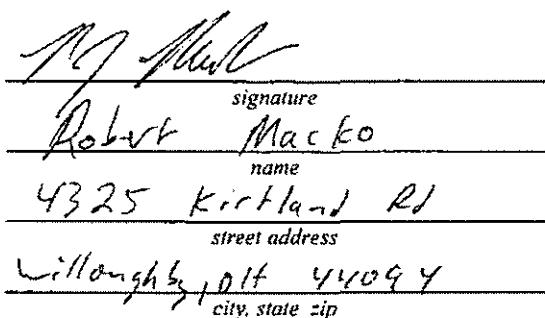 signature
Robert Macko
name
4325 Kirtland Rd
street address
Willoughby, OH 44094
city, state zip